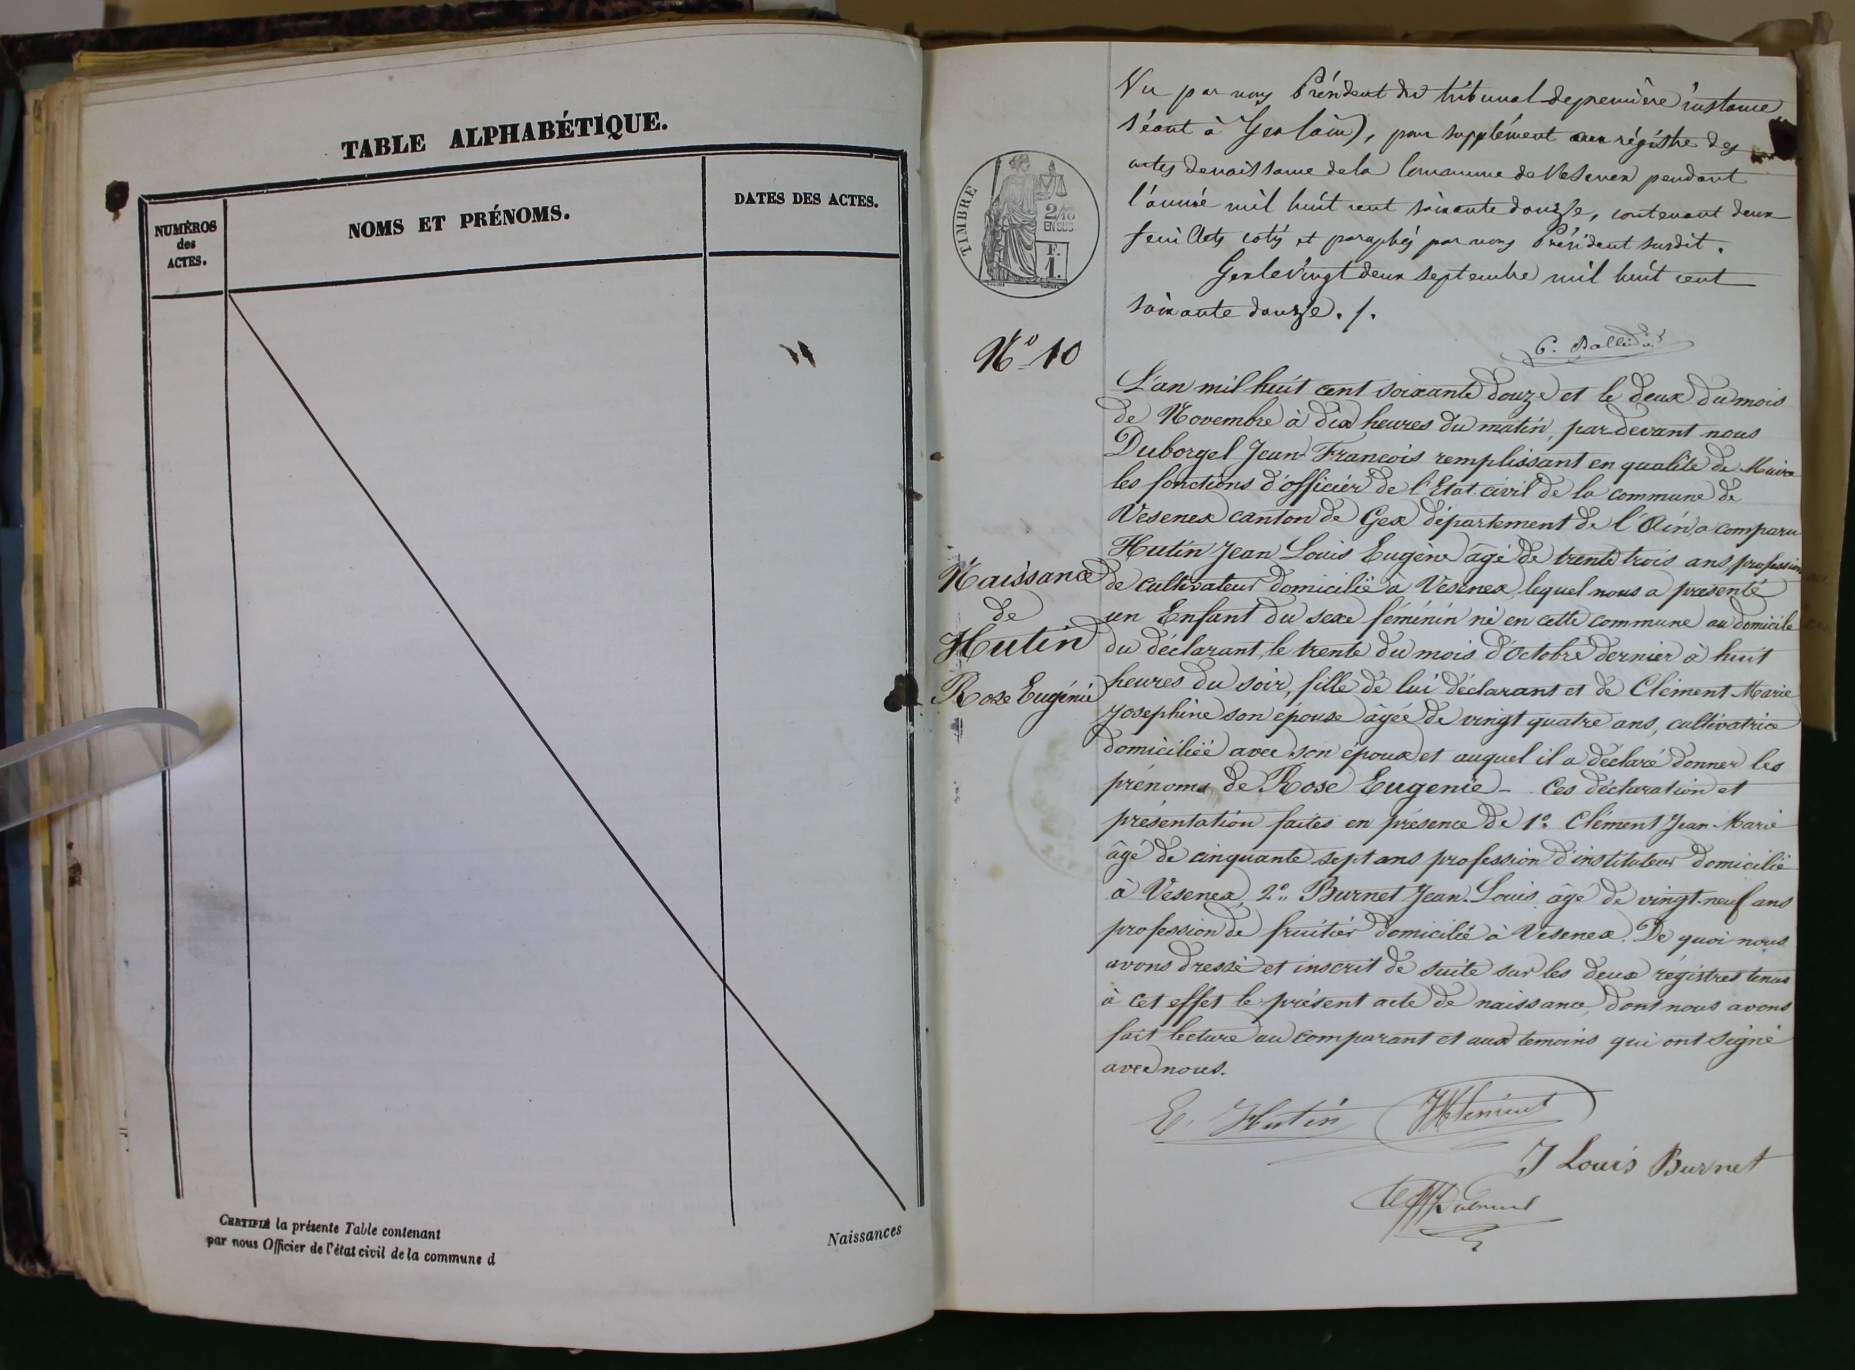 TABLE ALPHABÉTIQUE.
NUMÉROS
des
ACTES.
NOMS ET PRÉNOMS.
DATES DES ACTES.
CERTIFIÉ la présente Table contenant
par nous Officier de l'état civil de la commune d
Naissances
Vu par nous Président du tribunal de première instance
séant à Gex (ain), pour supplément aux régistre des
actes de naissance de la Commune de Vesenex pendant
l'année mil huit cent soixante douze, contenant deux
feuillets cotés et paraphés par nous Président susdit.
Gex le vingt deux septembre mil huit cent
soixante douze. /.
TIMBRE
2/10
EN SUS
F.
1.
N° 10
L'an mil huit cent soixante douze et le deux du mois
de Novembre à dix heures du matin, par devant nous
Duborgel Jean François remplissant en qualité de Maire
les fonctions d'officier de l'Etat civil de la commune de
Vesenex canton de Gex département de l'Ain, a comparu
Hutin Jean Louis Eugène âgé de trente trois ans, profession
de cultivateur domicilié à Vesenex, lequel nous a présenté
un Enfant du sexe féminin né en cette commune au domicile
du déclarant, le trente du mois d'Octobre dernier à huit
heures du soir, fille de lui déclarant et de Clément Marie
Josephine son épouse âgée de vingt quatre ans, cultivatrice
domiciliée avec son époux et auquel il a déclaré donner les
prénoms de Rose Eugenie - Ces déclaration et
présentation faites en présence de 1° Clément Jean-Marie
âgé de cinquante sept ans profession d'instituteur domicilié
à Vesenex, 2° Burnet Jean-Louis âgé de vingt-neuf ans
profession de fruitier domicilié à Vesenex. De quoi nous
avons dressé et inscrit de suite sur les deux régistres tenus
à cet effet le présent acte de naissance, dont nous avons
fait lecture au comparant et aux temoins qui ont signé
avec nous.
Naissance
de
Hutin
Rose Eugénie
E. Hutin JM Clément
J Louis Burnet